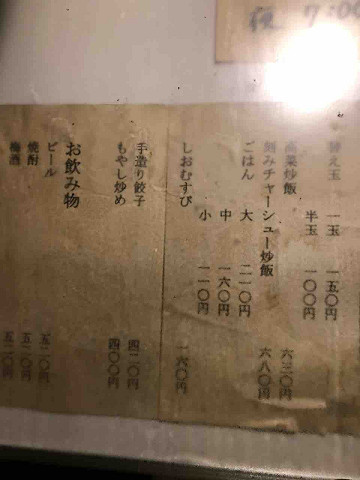 夜 7:00
替え玉 一玉 一五〇円
半玉 一〇〇円
高菜炒飯 六三〇円
刻みチャーシュー炒飯 六八〇円
ごはん 大 二一〇円
中 一六〇円
小 一一〇円
しおむすび 一六〇円
手造り餃子 四二〇円
もやし炒め 四〇〇円
お飲み物
ビール 五二〇円
焼酎 五二〇円
梅酒 五二〇円